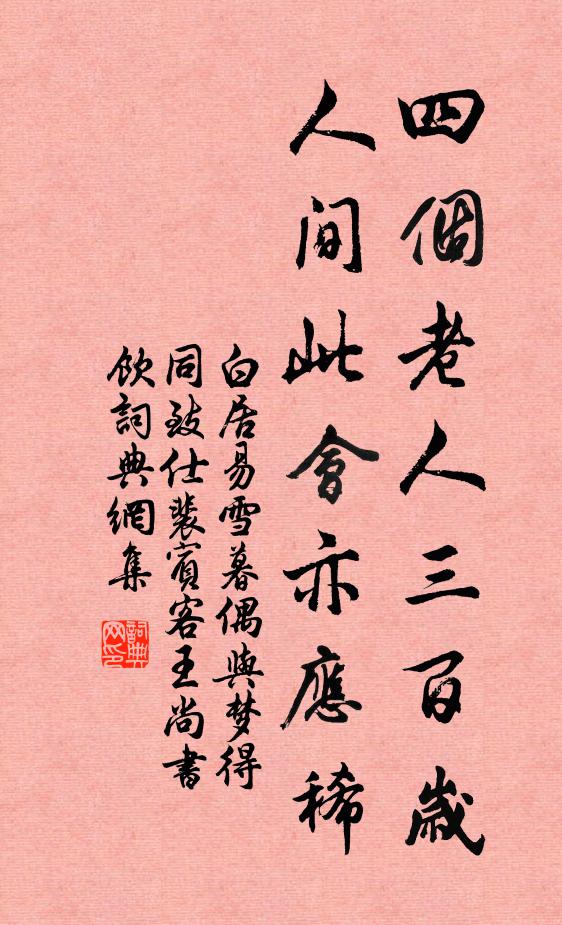 四個老人三百歲
人間此會亦應稀
白居易雪暮偶與梦得
同致仕裴賓客王尚書
飲詞典網集
詞典
网印